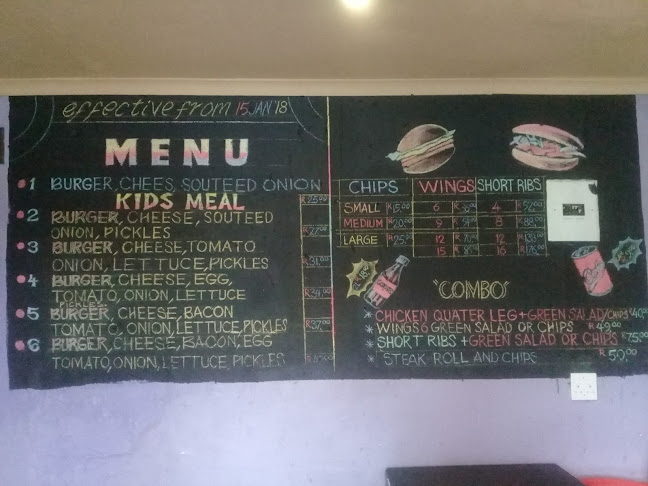 effective from 15 JAN '18
MENU
1 BURGER, CHEES, SOUTEED ONION
KIDS MEAL R25.00
2 BURGER, CHEESE, SOUTEED
ONION, PICKLES
3 BURGER, CHEESE, TOMATO
ONION, LETTUCE, PICKLES
4 BURGER, CHEESE, EGG,
TOMATO, ONION, LETTUCE
PICKLES
5 BURGER, CHEESE, BACON
TOMATO, ONION, LETTUCE, PICKLES
6 BURGER, CHEESE, BACON, EGG
TOMATO, ONION, LETTUCE, PICKLES
CHIPS WINGS SHORT RIBS
SMALL R15.00 6 4
MEDIUM R20.00 9 8
LARGE R25 12 12
15 16
'COMBO'
* CHICKEN QUATER LEG + GREEN SALAD/CHIPS
* WINGS 6 GREEN SALAD OR CHIPS R49.00
* SHORT RIBS + GREEN SALAD OR CHIPS
* STEAK ROLL AND CHIPS R50.00